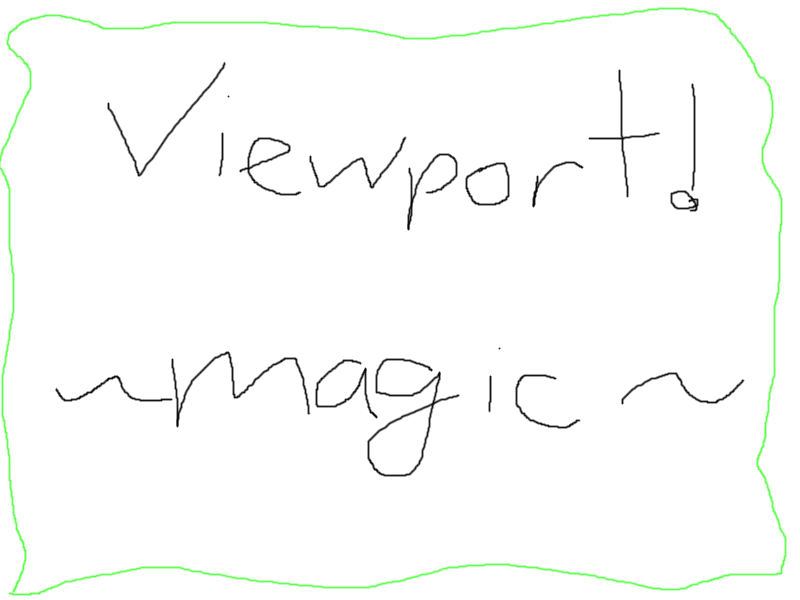 Viewport!
~magic~